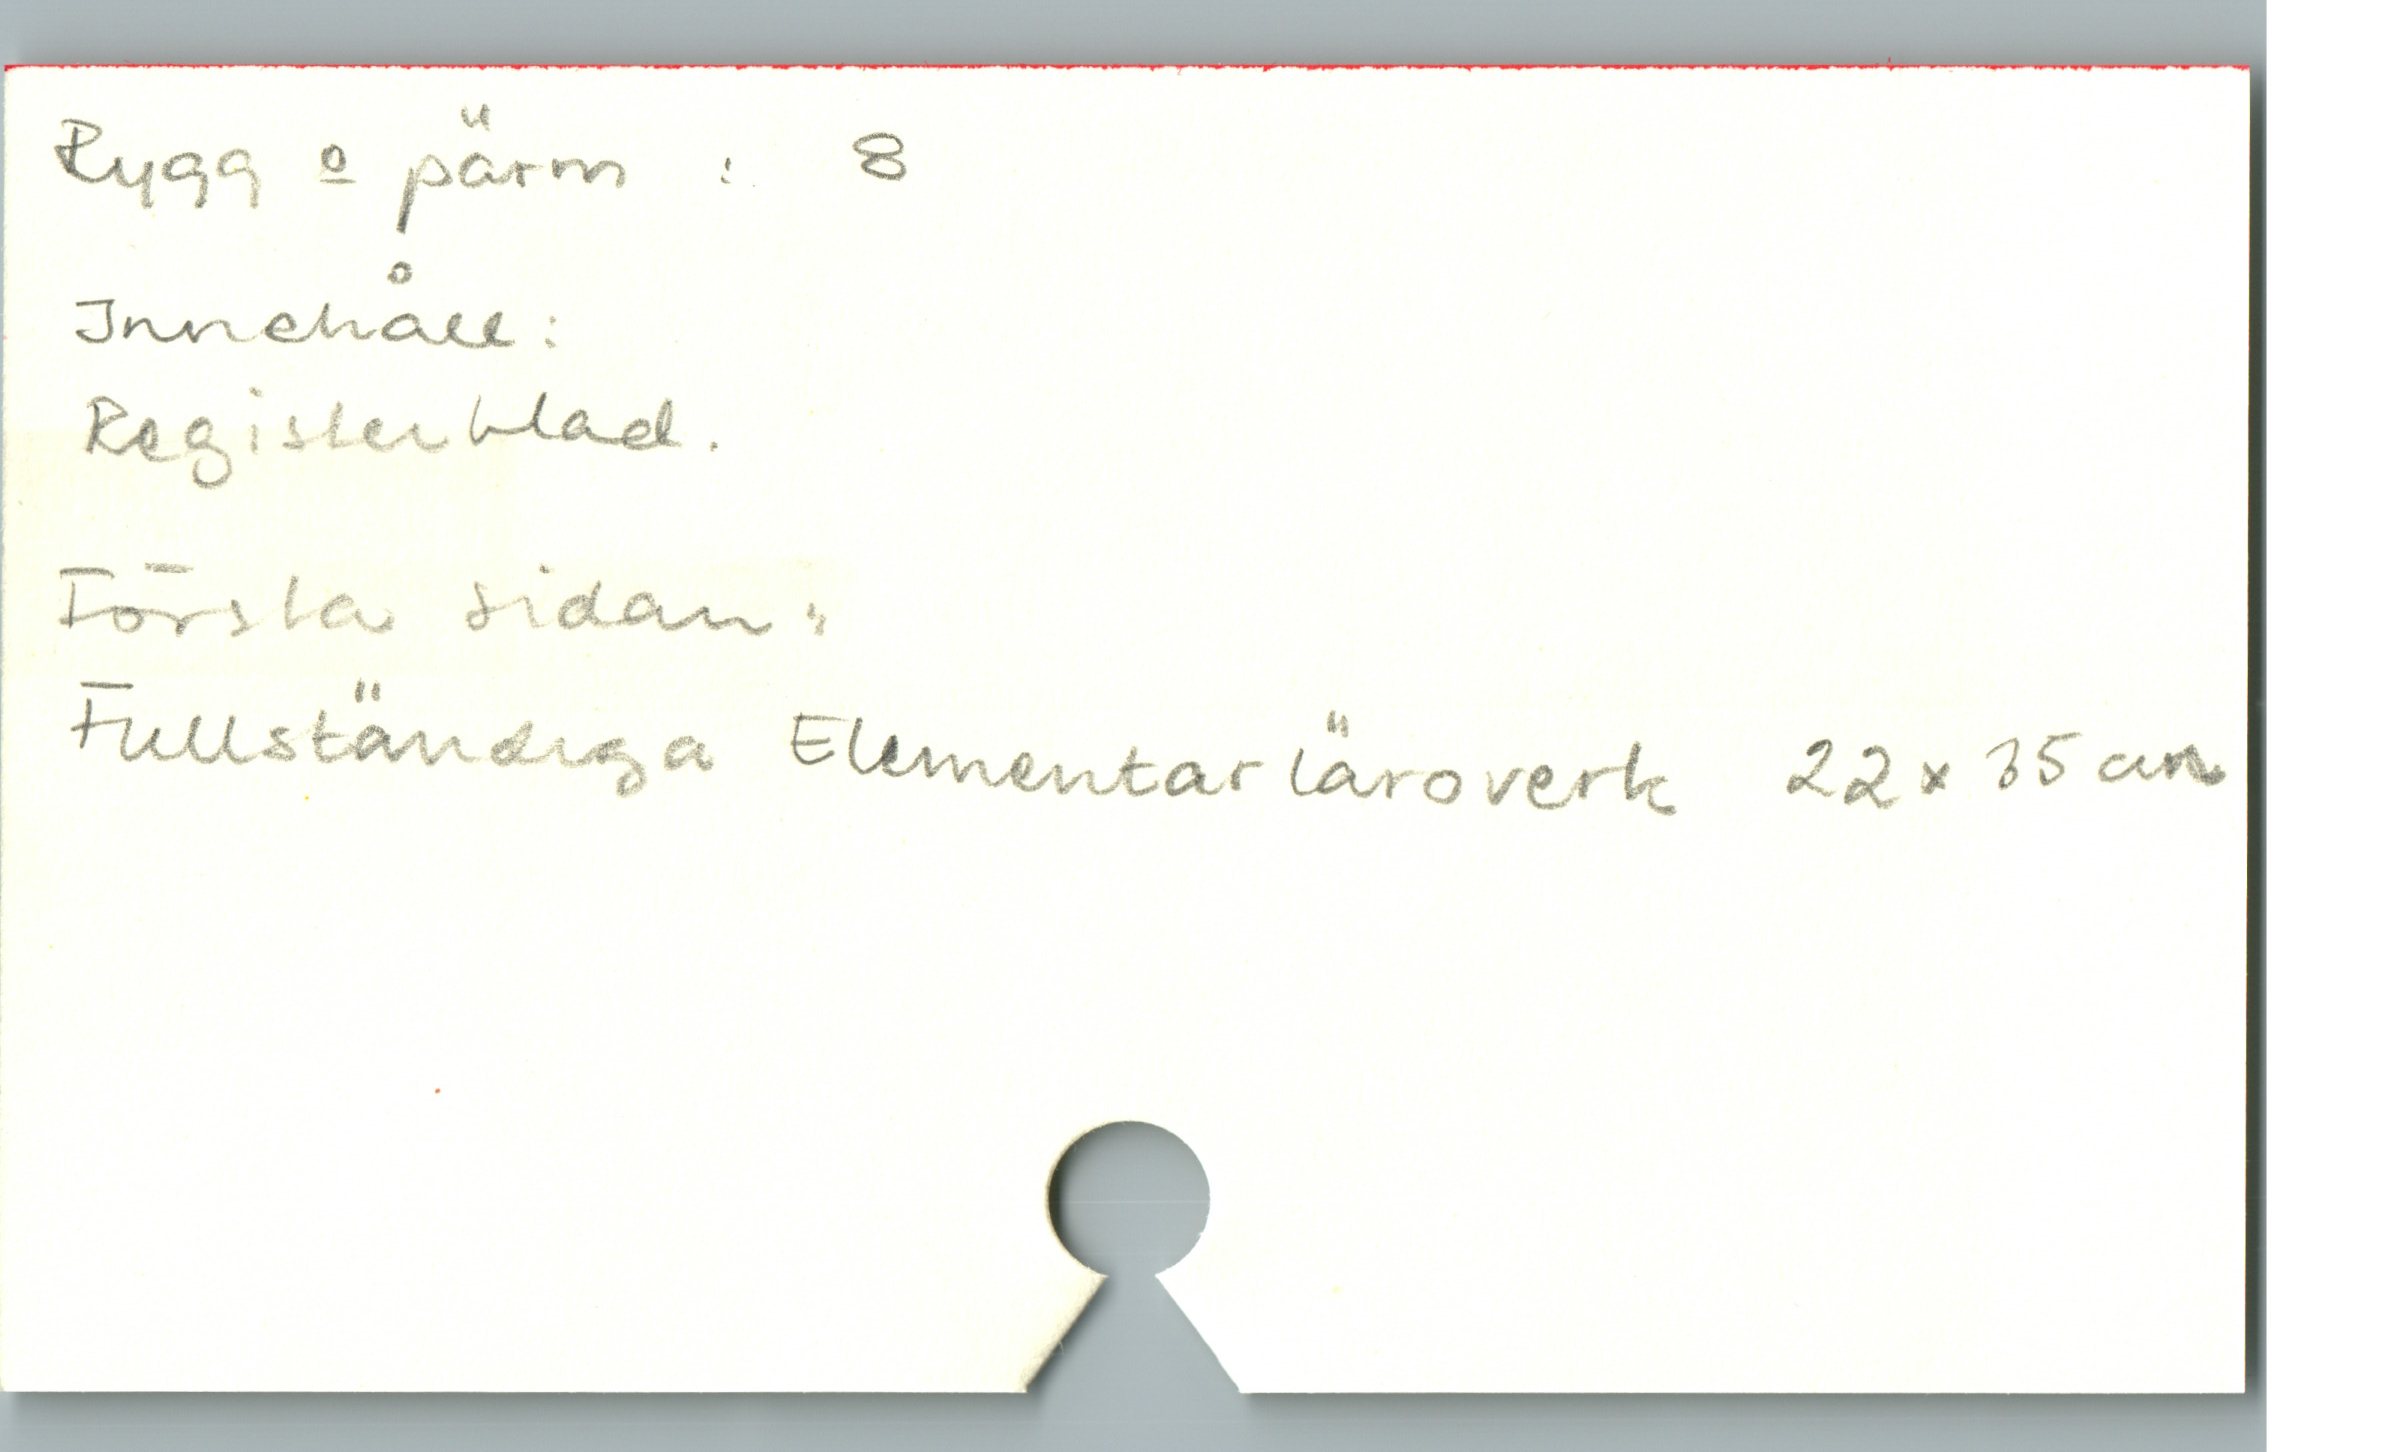 Rygg o pärm : 8
Innehåll:
Registerblad.
Första sidan:
Fullständiga Elementarläroverk 22 x 35 cm